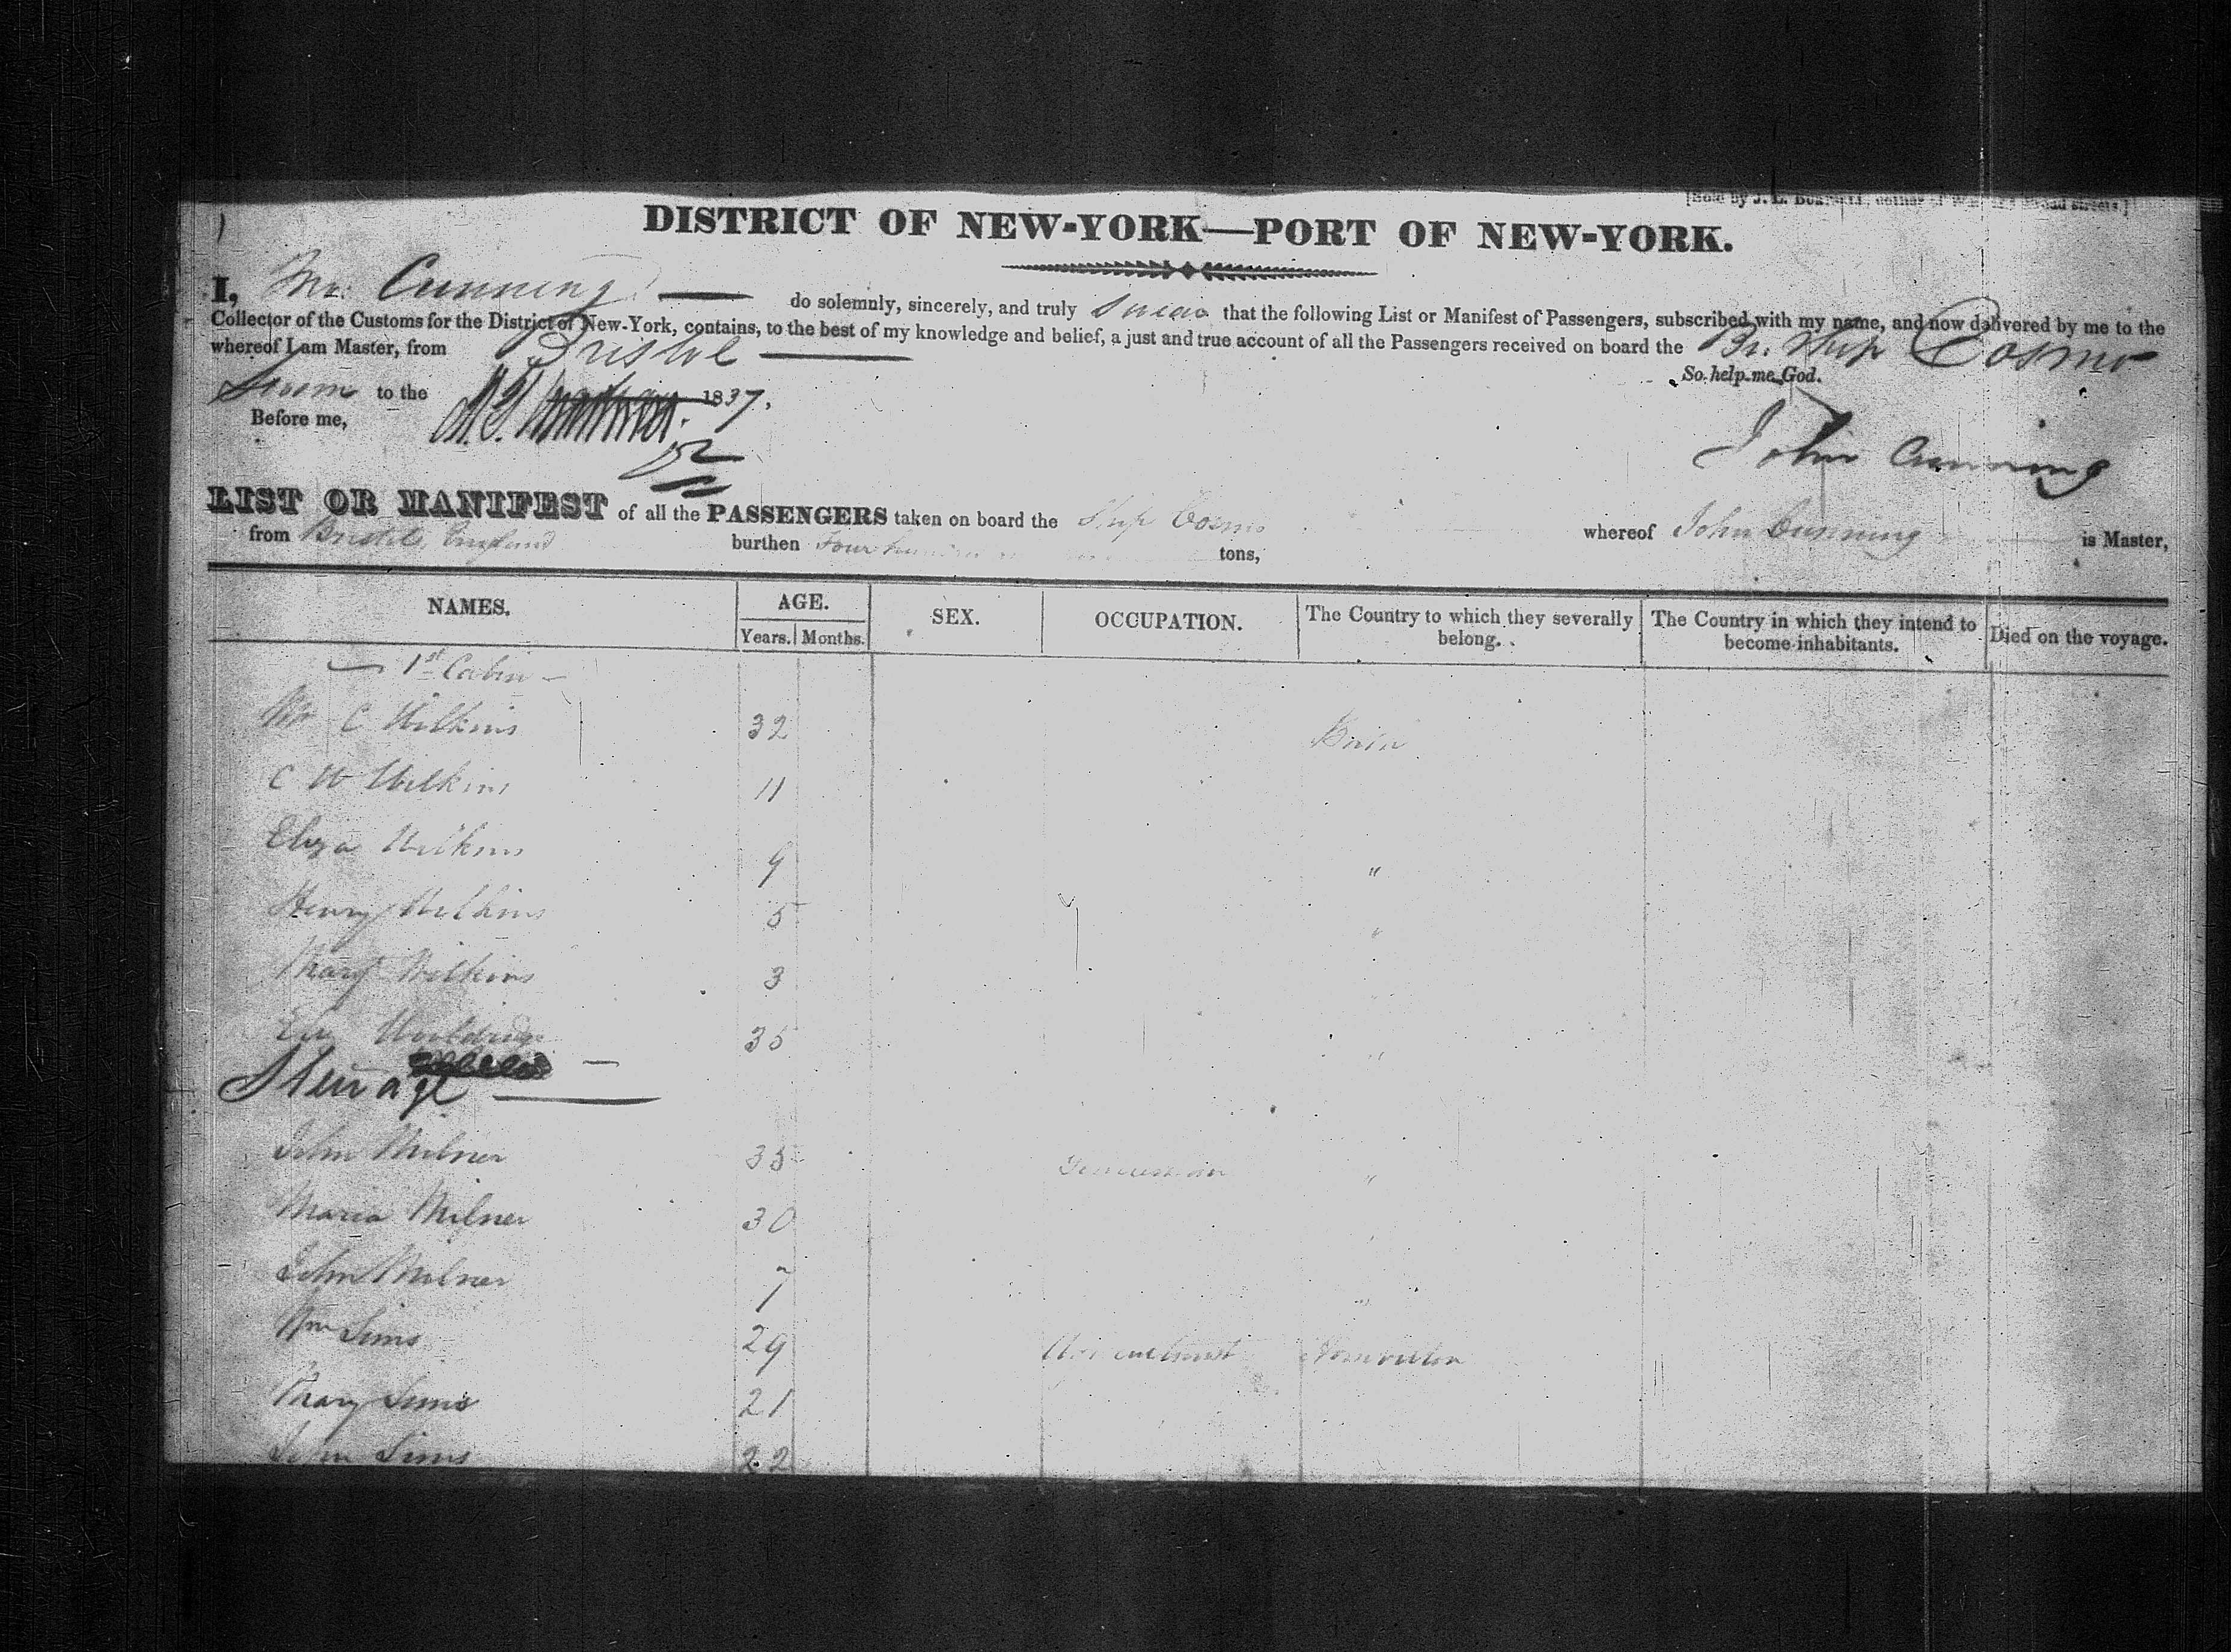 DISTRICT OF NEW-YORK—PORT OF NEW-YORK.
I, Mr. Cunning do solemnly, sincerely, and truly swear that the following List or Manifest of Passengers, subscribed with my name, and now delivered by me to the
Collector of the Customs for the District of New-York, contains, to the best of my knowledge and belief, a just and true account of all the Passengers received on board the Br. Ship Cosmo
whereof I am Master, from Bristol
So help me God.
to the 1837,
Before me,
John Cunning
LIST OR MANIFEST of all the PASSENGERS taken on board the Ship Cosmo whereof John Cunning is Master,
from Bristol, England burthen Four hundred tons,
NAMES. AGE. SEX. OCCUPATION. The Country to which they severally belong. The Country in which they intend to become inhabitants. Died on the voyage.
Years. Months.
— 1st Cabin —
C Wilkins 32
C W Wilkins 11
Eliza Wilkins 9 "
Henry Wilkins 5 "
Mary Wilkins 3
35 "
Sterrage
John Milner 35 "
Maria Milner 30 "
John Milner 7 "
Wm Sims 29
Mary Sims 21
John Sims 22